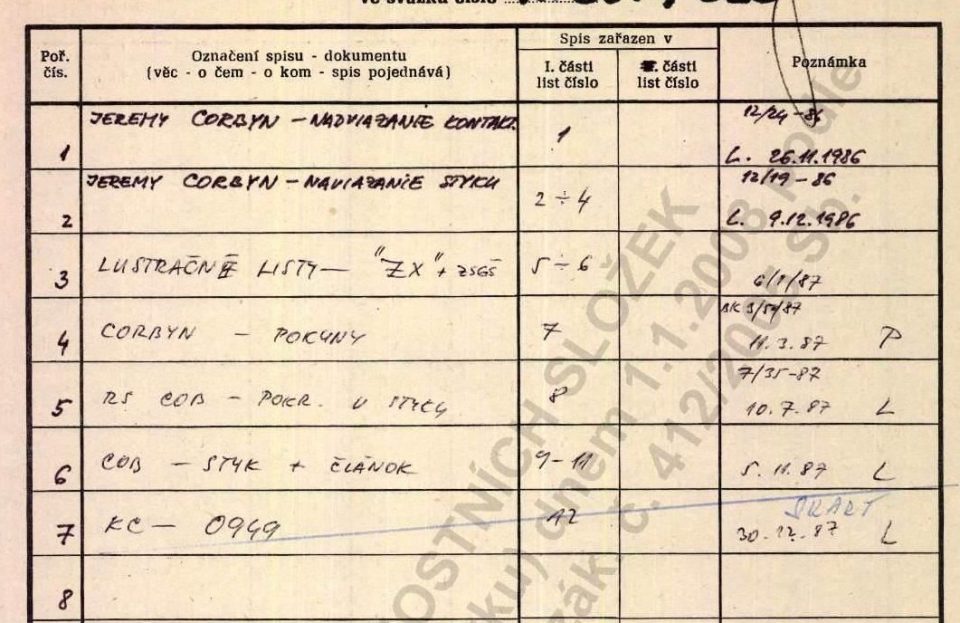 ve svazku číslo
Poř. čís.
Označení spisu - dokumentu
(věc - o čem - o kom - spis pojednává)
Spis zařazen v
I. části list číslo
části list číslo
Poznámka
1
JEREMY CORBYN – NADVIAZANIE KONTAKT.
1
12/24-86
L. 26.11.1986
2
JEREMY CORBYN – NAVIAZANIE STYKU
2 ÷ 4
12/19-86
L. 9.12.1986
3
LUSTRAČNÉ LISTY – "ZX" + ZSGŠ
5 ÷ 6
6/1/87
4
CORBYN – POKYNY
7
11.3.87 P
5
RS COB – POKR. V STYKU
8
7/35-87
10.7.87 L
6
COB – STYK + ČLÁNOK
9-11
5.11.87 L
7
KC – 0949
12
SKART
30.12.87 L
8
OSTNÍCH SLOŽEK
dnem 1.1.2008 podle
zák. č. 412/2005 Sb.